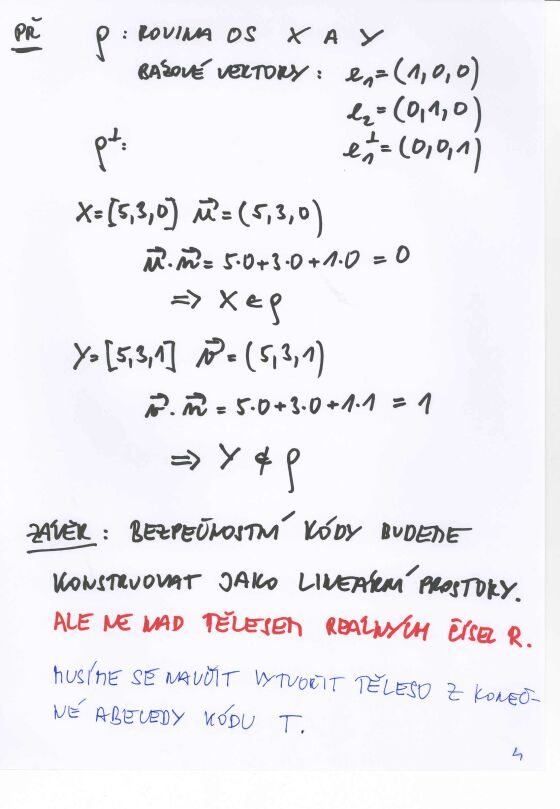 PŘ ρ : ROVINA OS X A Y
BÁZOVÉ VEKTORY : e₁=(1,0,0)
e₂=(0,1,0)
ρ⊥: e₁⊥=(0,0,1)
X=[5,3,0] u⃗=(5,3,0)
u⃗.n⃗= 5.0+3.0+1.0 = 0
⇒ X ∈ ρ
Y=[5,3,1] v⃗=(5,3,1)
v⃗.n⃗ = 5.0+3.0+1.1 = 1
⇒ Y ∉ ρ
ZÁVĚR : BEZPEČNOSTNÍ KÓDY BUDEME
KONSTRUOVAT JAKO LINEÁRNÍ PROSTORY.
ALE NE NAD TĚLESEM REÁLNÝCH ČÍSEL R.
MUSÍME SE NAUČIT VYTVOŘIT TĚLESO Z KONEČ-
NÉ ABECEDY KÓDU T.
4